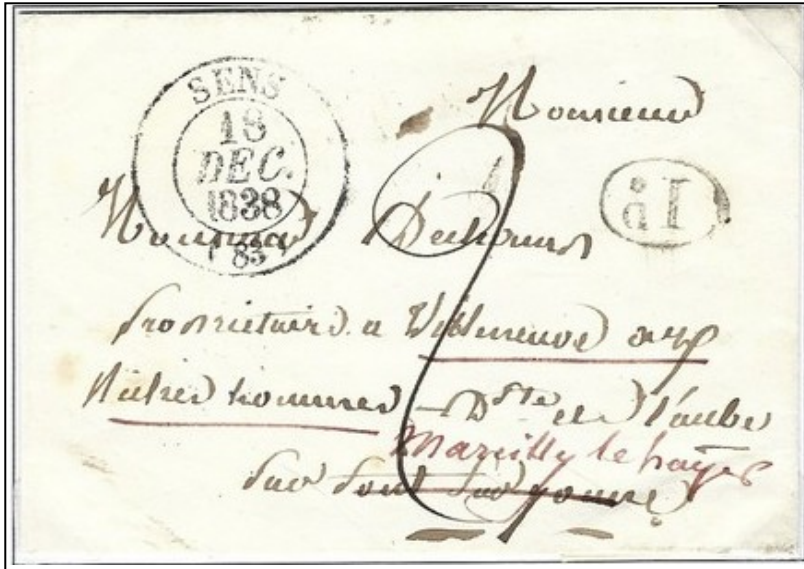 SENS
18
DEC.
1838
(83)
Monsieur
Monsieur
propriétaire a Villeneuve aux
Riches hommes Dte de l'aube
Marcilly le hayer
Sur pont sur yonne